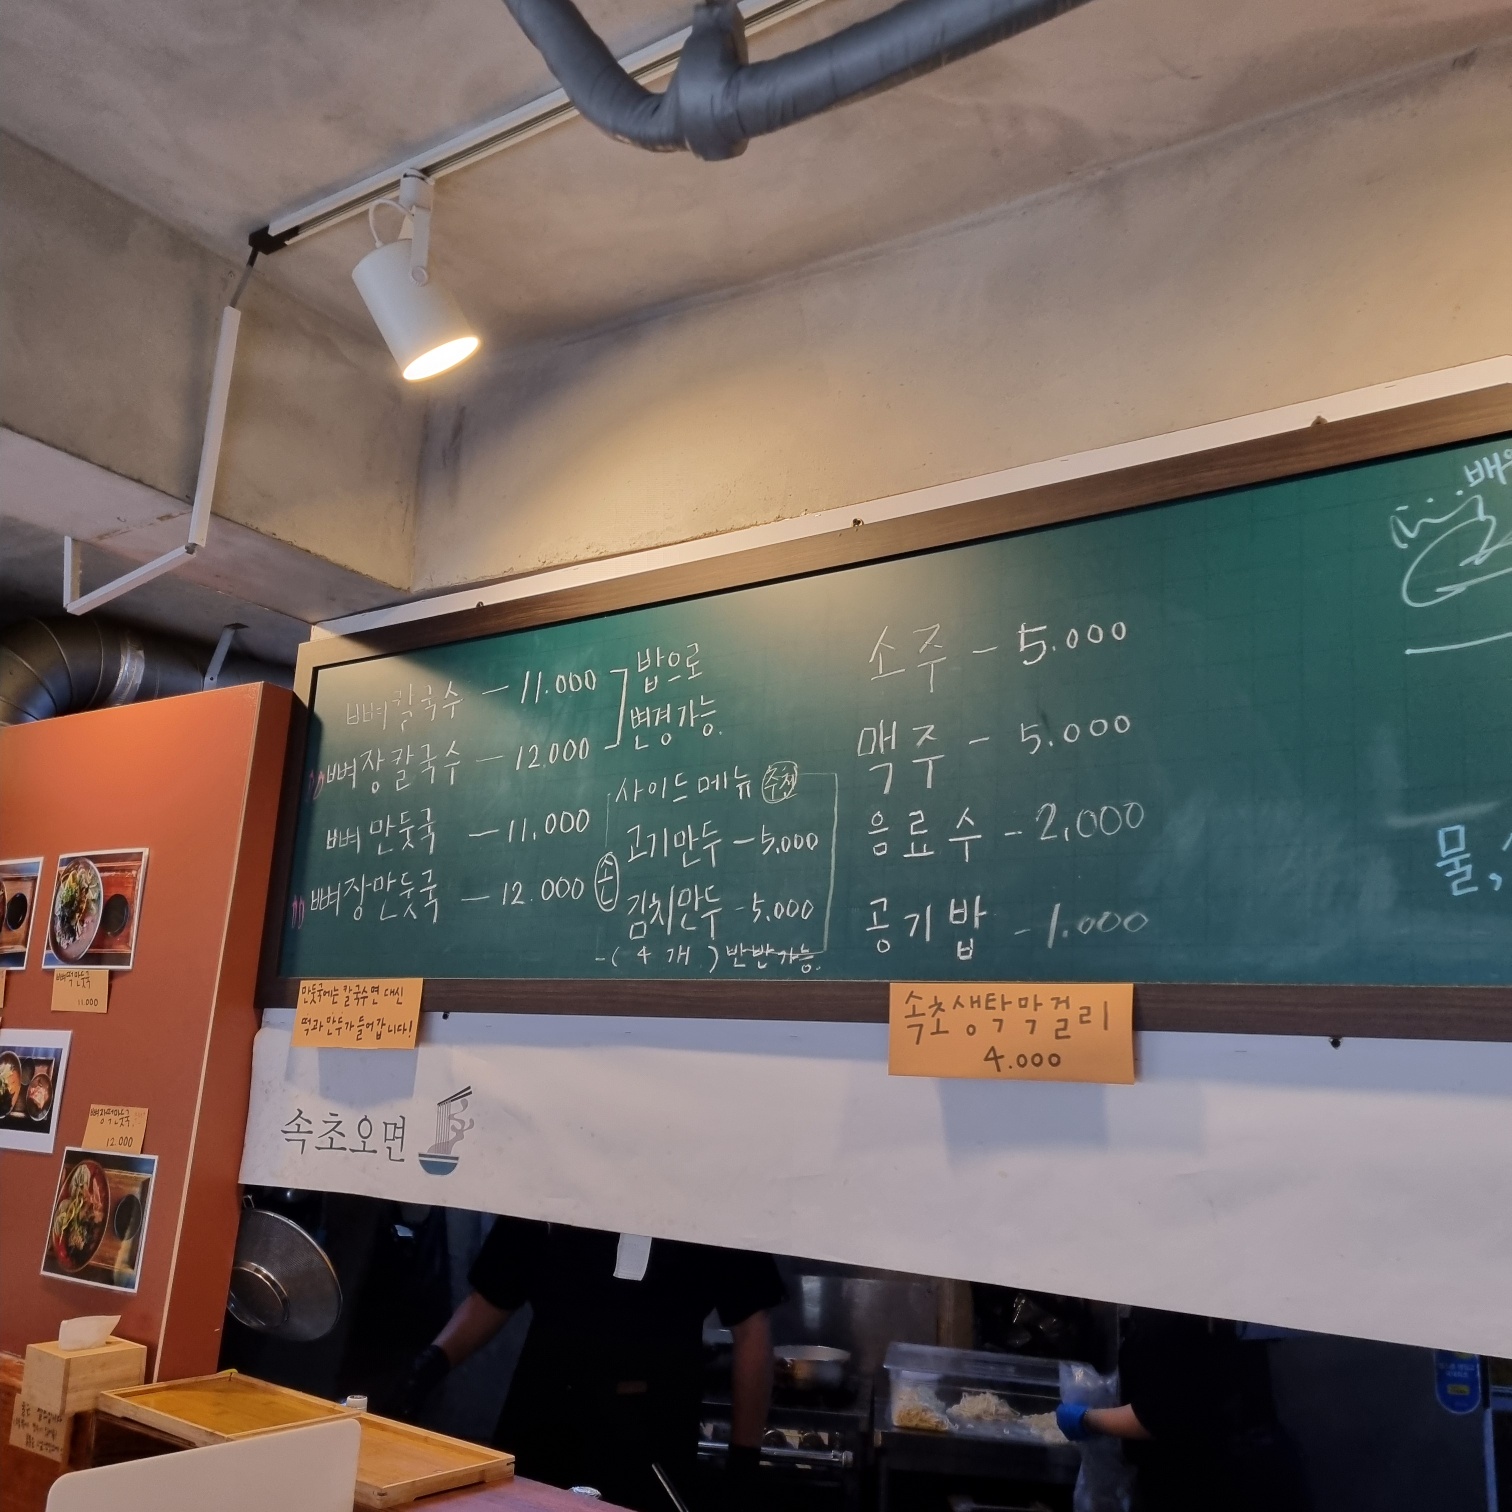 뼈칼국수 - 11.000
뼈장칼국수 - 12.000
밥으로
변경가능.
뼈만둣국 - 11,000
뼈장만둣국 - 12.000
사이드메뉴 추천
손
고기만두 - 5,000
김치만두 - 5,000
-( 4 개 ) 반반가능.
소주 - 5.000
맥주 - 5.000
음료수 - 2,000
공기밥 - 1.000
물,
만둣국에는 칼국수면 대신
떡과 만두가 들어갑니다!
속초생탁막걸리
4.000
속초오면
뼈떡만둣국
11.000
뼈장떡만둣국
12.000